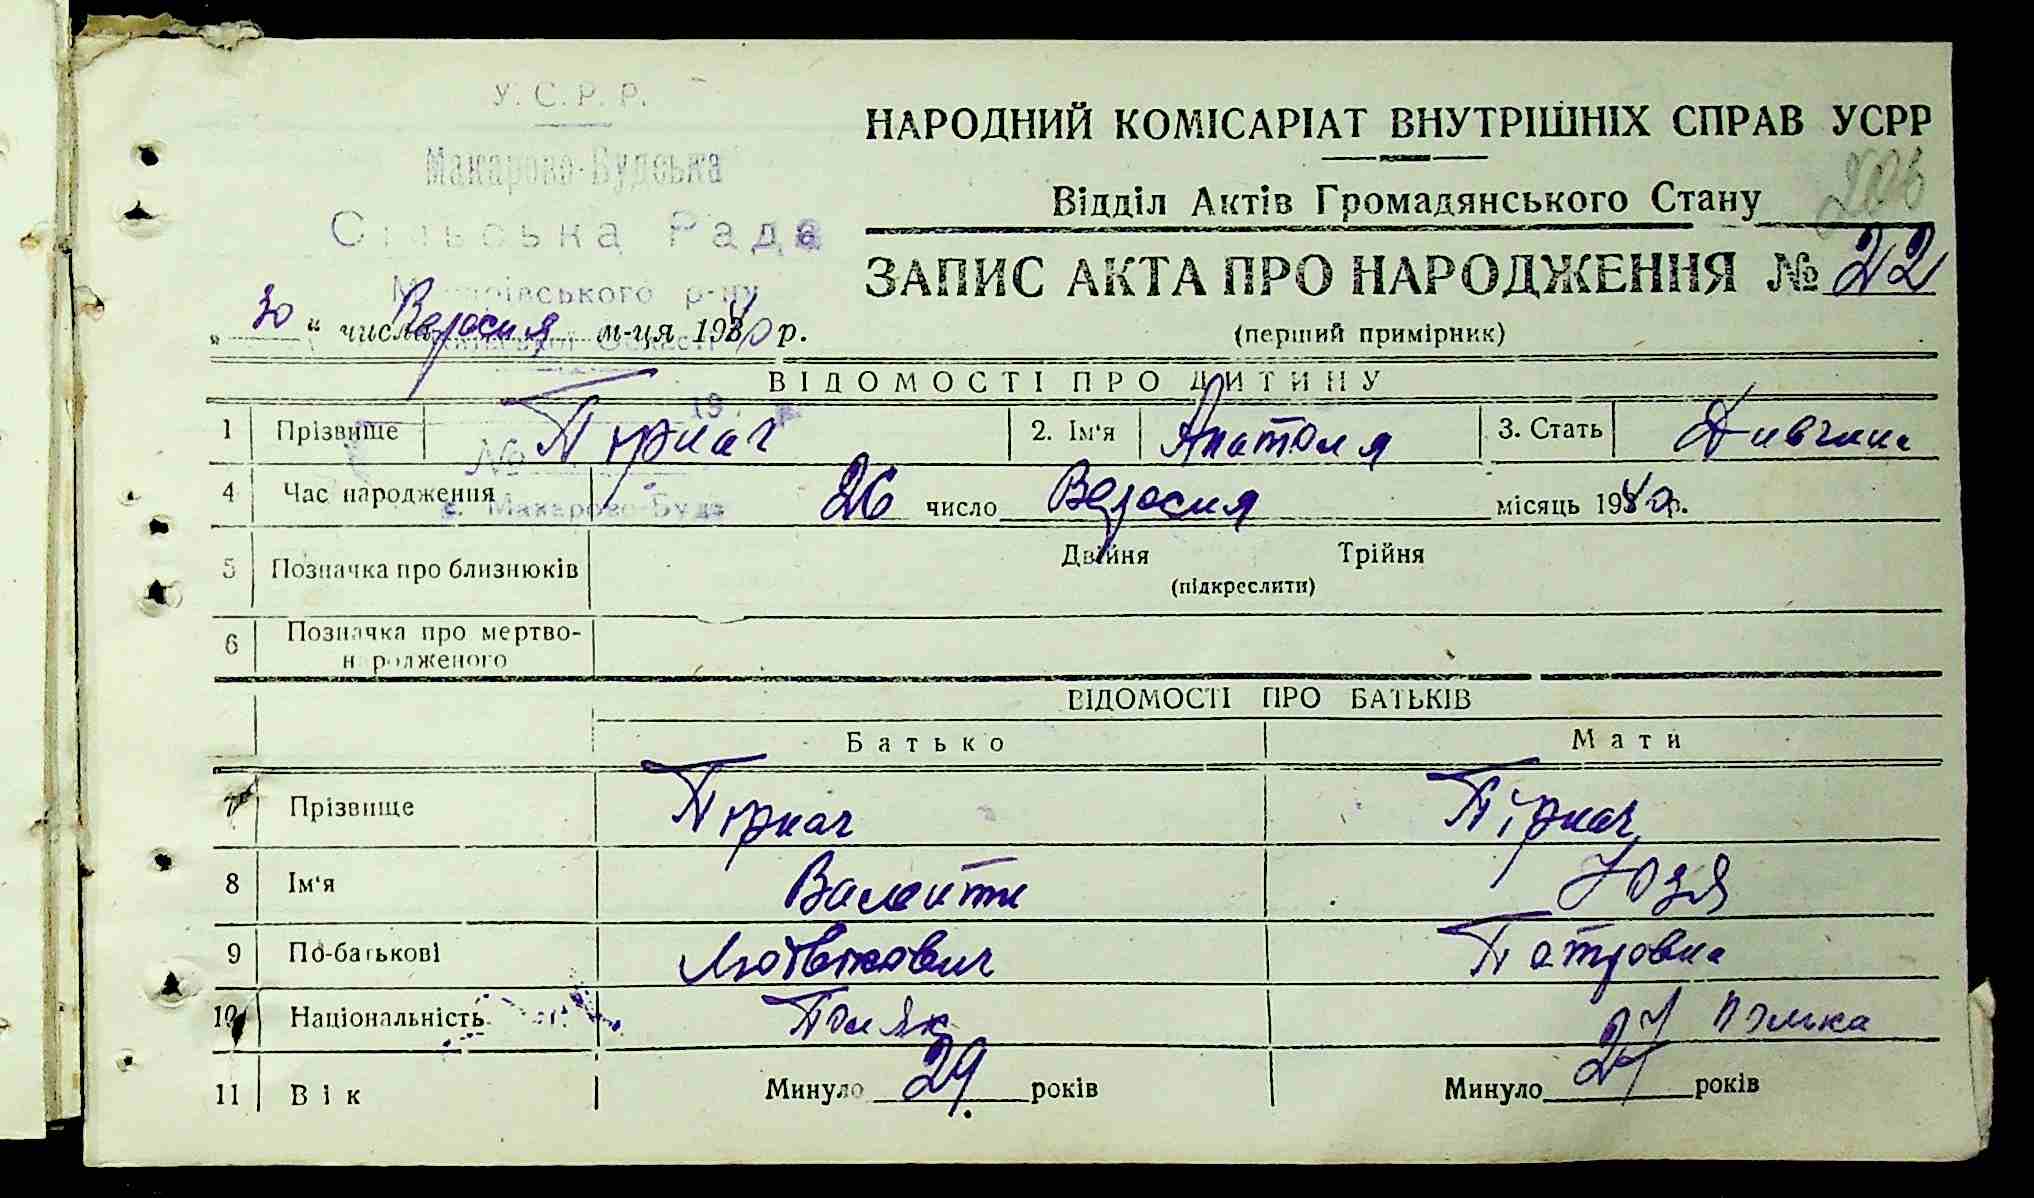 У. С. Р. Р.
Макарово-Будська
Сільська Рада
Макарівського р-ну
НАРОДНИЙ КОМІСАРІАТ ВНУТРІШНІХ СПРАВ УСРР
Відділ Актів Громадянського Стану
ЗАПИС АКТА ПРО НАРОДЖЕННЯ № 22
(перший примірник)
„ 30 “ числа Вересня м-ця 1940 р.
ВІДОМОСТІ ПРО ДИТИНУ
1 Прізвище Пірнач 2. Ім'я Анатоля 3. Стать Дивчина
№
4 Час народження 26 число Вересня місяць 1940 р.
с. Макарово-Буда
5 Позначка про близнюків Двійня Трійня
(підкреслити)
6 Позначка про мертво-
народженого
ВІДОМОСТІ ПРО БАТЬКІВ
Батько Мати
7 Прізвище Пірнач Пірнач
8 Ім'я Валентин Юзя
9 По-батькові Людвікович Петровна
10 Національність Поляк 27 полька
11 Вік Минуло 29 років Минуло 27 років